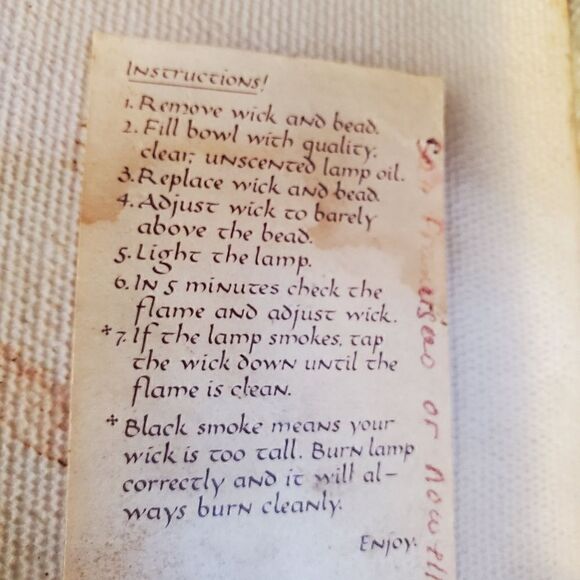 Instructions!
1. Remove wick and bead.
2. Fill bowl with quality,
clear, unscented lamp oil.
3. Replace wick and bead.
4. Adjust wick to barely
above the bead.
5. Light the lamp.
6. In 5 minutes check the
flame and adjust wick.
*7. If the lamp smokes, tap
the wick down until the
flame is clean.
* Black smoke means your
wick is too tall. Burn lamp
correctly and it will al-
ways burn cleanly.
Enjoy.
or